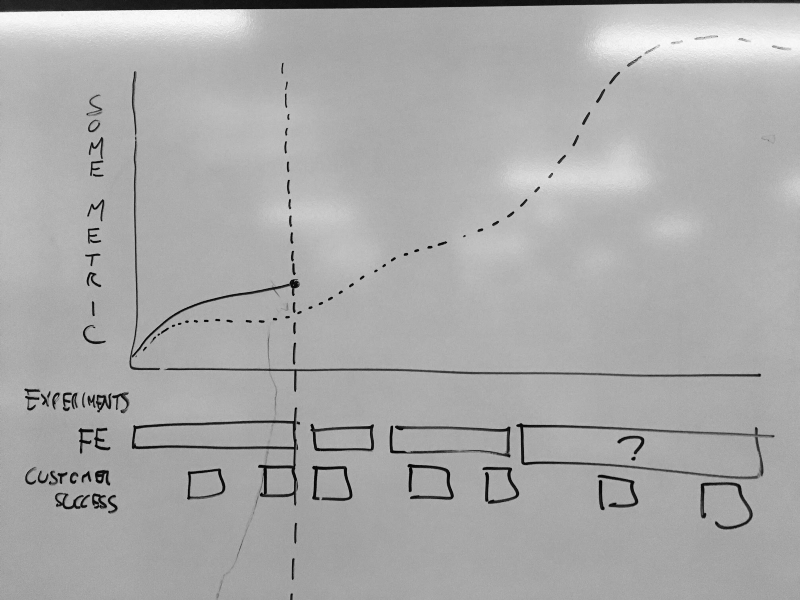 SOME METRIC
EXPERIMENTS
FE
?
CUSTOMER
SUCCESS